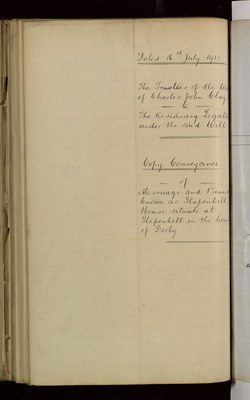 Dated 16th July 1912
The Trustees of the Will
of Charles John Clay
— to —
The Residuary Legate
under the said Will
Copy Conveyance
— of —
Messuage and Premi
known as Stapenhill
House situate at
Stapenhill in the Coun
of Derby